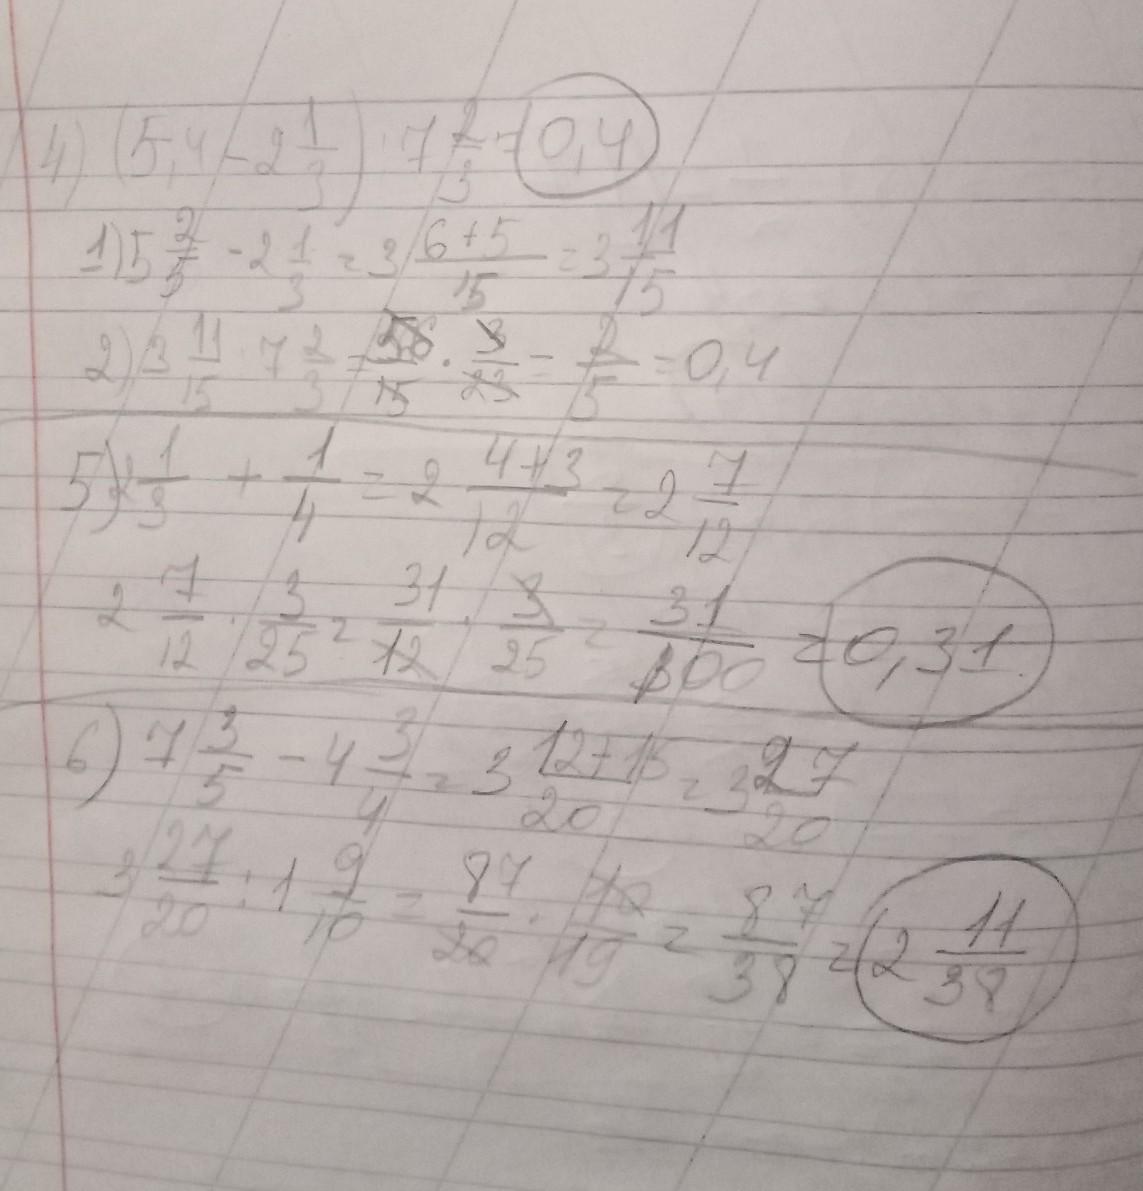 4) (5,4 - 2 1/3) : 7 2/3 = 0,4
1) 5 2/5 - 2 1/3 = 3 6+5/15 = 3 11/15
2) 3 11/15 : 7 2/3 = 56/15 · 3/23 = 2/5 = 0,4
5) 2 1/3 + 1/4 = 2 4+3/12 = 2 7/12
2 7/12 · 3/25 = 31/12 · 3/25 = 31/100 = 0,31
6) 7 3/5 - 4 3/4 = 3 12+15/20 = 3 27/20
3 27/20 : 1 9/10 = 87/20 · 10/19 = 87/38 = 2 11/38